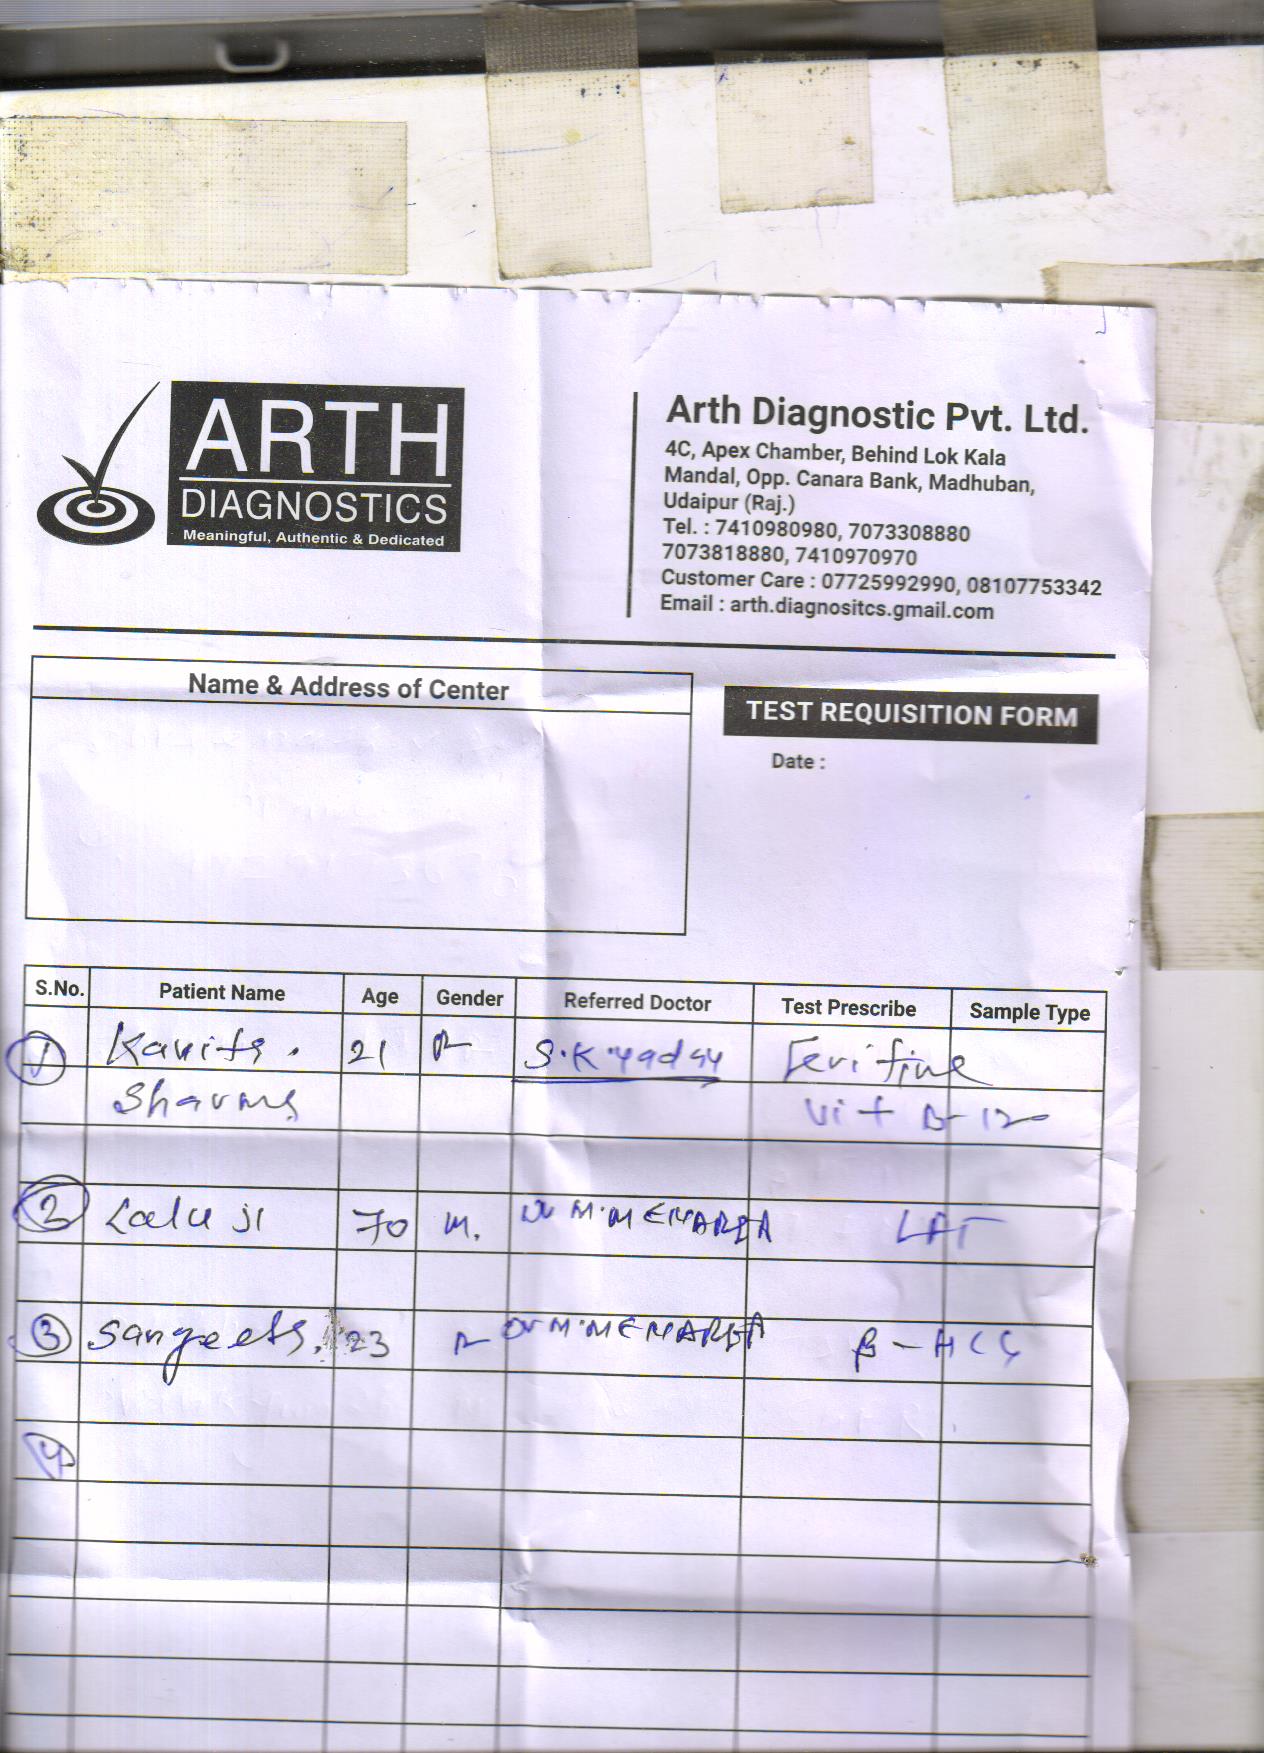 ARTH
DIAGNOSTICS
Meaningful, Authentic & Dedicated
Arth Diagnostic Pvt. Ltd.
4C, Apex Chamber, Behind Lok Kala
Mandal, Opp. Canara Bank, Madhuban,
Udaipur (Raj.)
Tel. : 7410980980, 7073308880
7073818880, 7410970970
Customer Care : 07725992990, 08107753342
Email : arth.diagnositcs.gmail.com
Name & Address of Center
TEST REQUISITION FORM
Date :
S.No. Patient Name Age Gender Referred Doctor Test Prescribe Sample Type
1 Kavita. 21 F S.K.yadav
Sharma Vit B-12
2 Lalu ji 70 M. Dr M.MENARIA LFT
3 Sangeeta. 23 F Dr M.MENARIA β-HCG
4